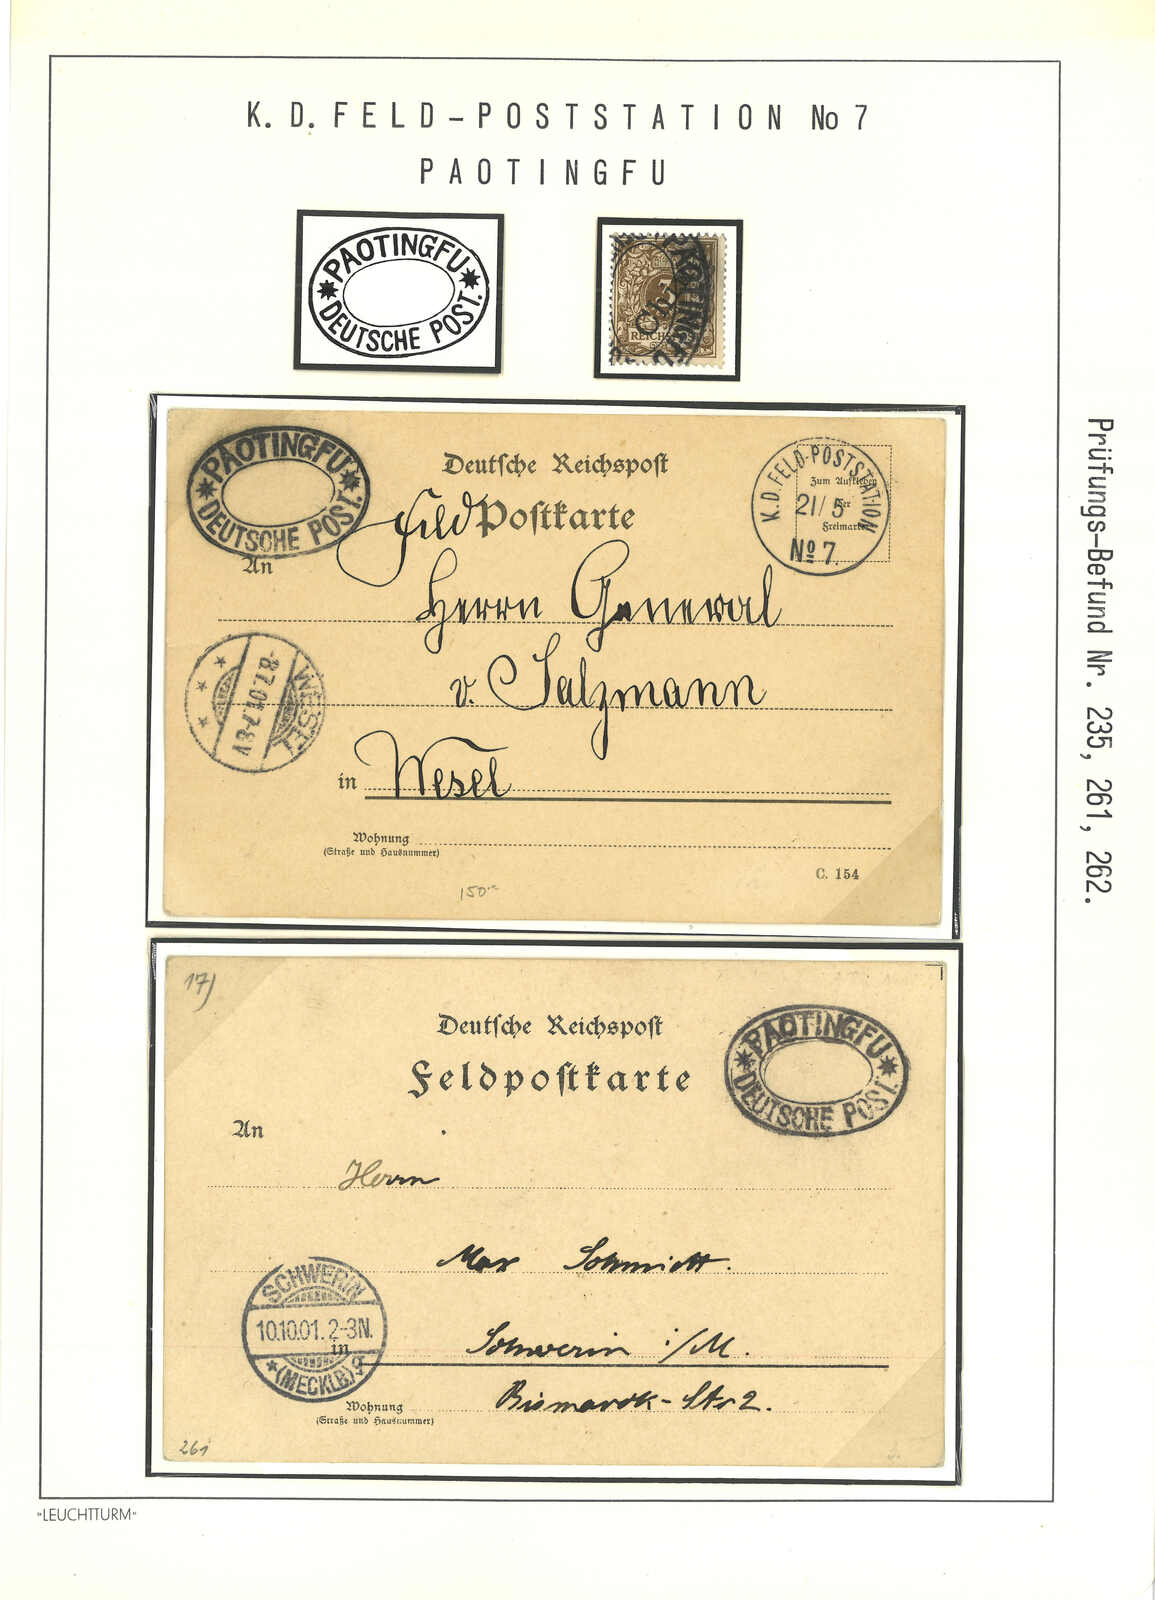 K. D. FELD-POSTSTATION No 7
PAOTINGFU
PAOTINGFU
DEUTSCHE POST.
PAOTINGFU
3
REICHS
Chi
PAOTINGFU
DEUTSCHE POST.
Deutsche Reichspost
Feld Postkarte
K.D. FELD-POSTSTATION
21/5
No 7.
Zum Aufkleben
der
Freimarke
An
Herrn General
v. Salzmann
WESEL
-8.7.01.7-8V
in Wesel
Wohnung
(Straße und Hausnummer)
C. 154
150.-
Prüfungs-Befund Nr. 235, 261, 262.
17)
Deutsche Reichspost
Feldpostkarte
PAOTINGFU
DEUTSCHE POST.
An
Herrn
Max Schmidt.
SCHWERIN
10.10.01.2-3N.
(MECKLB) g
in
Schwerin i/M.
Bismarck-Str 2.
Wohnung
(Straße und Hausnummer)
261
"LEUCHTTURM"